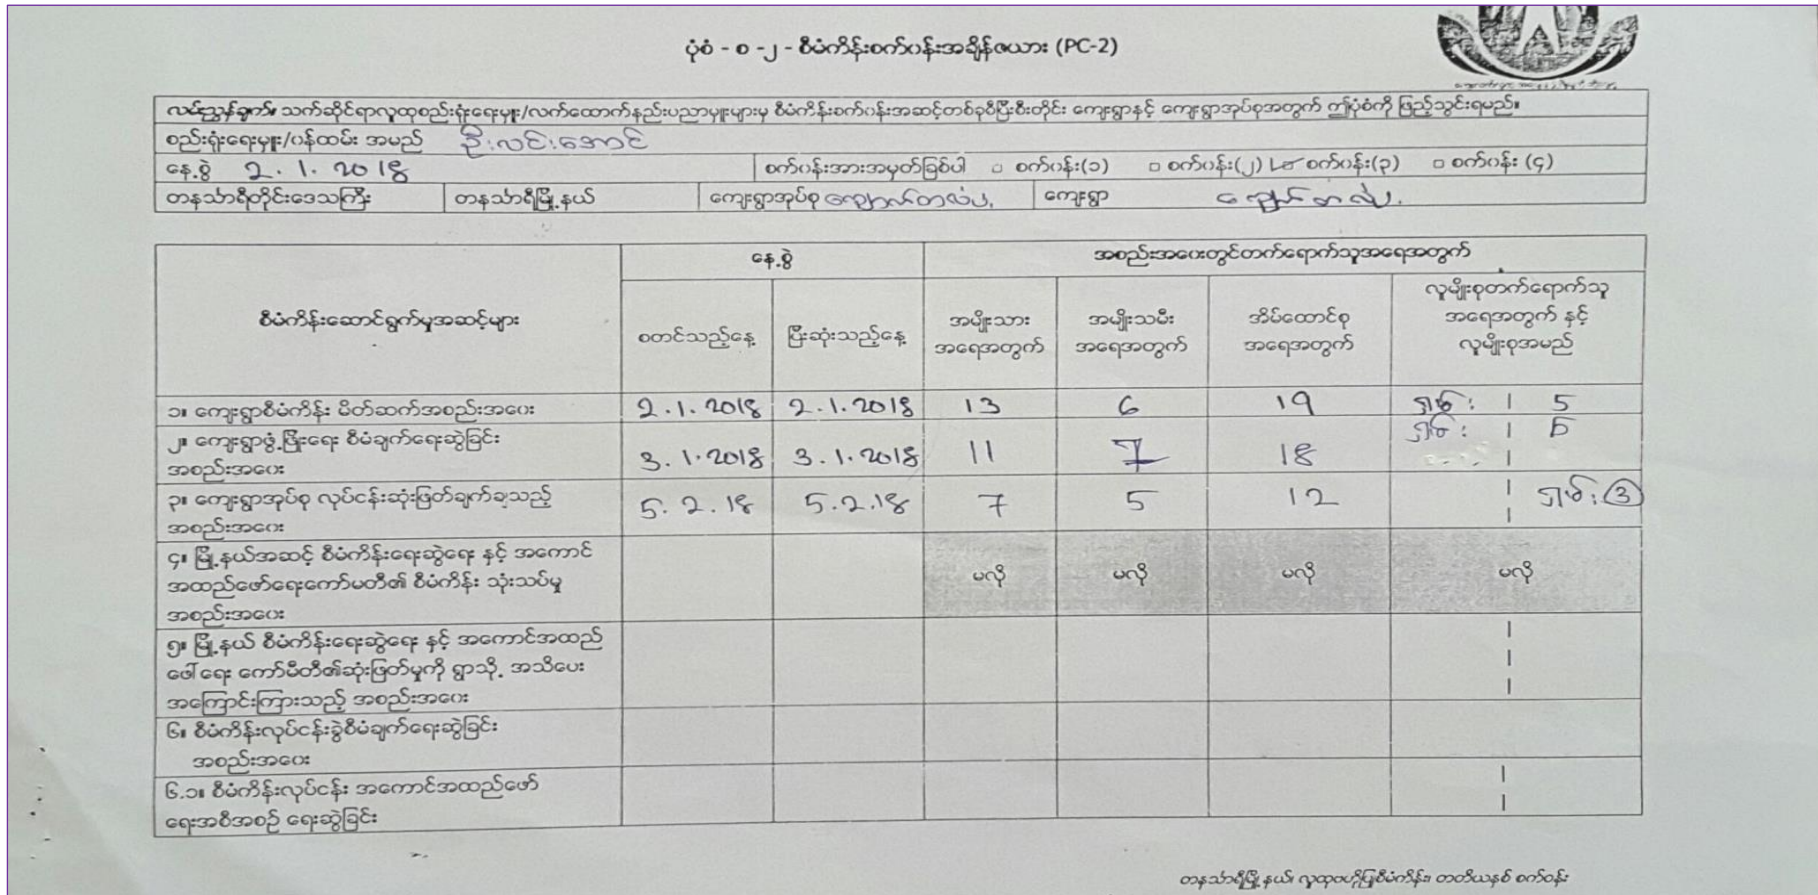 ပုံစံ - စ -၂ - စီမံကိန်းစက်ဝန်းအချိန်ဇယား (PC-2)
လမ်းညွှန်ချက်။ သက်ဆိုင်ရာလူထုစည်းရုံးရေးမှူး/လက်ထောက်နည်းပညာမှူးများမှ စီမံကိန်းစက်ဝန်းအဆင့်တစ်ခုပြီးစီးတိုင်း ကျေးရွာနှင့် ကျေးရွာအုပ်စုအတွက် ဤပုံစံကို ဖြည့်သွင်းရမည်။
စည်းရုံးရေးမှူး/ဝန်ထမ်း အမည် ဦးလင်းအောင်
နေ့စွဲ 2. 1. 2018 စက်ဝန်းအားအမှတ်ခြစ်ပါ □ စက်ဝန်း(၁) □ စက်ဝန်း(၂) ☑ စက်ဝန်း(၃) □ စက်ဝန်း (၄)
တနင်္သာရီတိုင်းဒေသကြီး တနင်္သာရီမြို့နယ် ကျေးရွာအုပ်စု ကျေးရွာ
နေ့စွဲ အစည်းအဝေးတွင်တက်ရောက်သူအရေအတွက်
စီမံကိန်းဆောင်ရွက်မှုအဆင့်များ စတင်သည့်နေ့ ပြီးဆုံးသည့်နေ့ အမျိုးသား အရေအတွက် အမျိုးသမီး အရေအတွက် အိမ်ထောင်စု အရေအတွက် လူမျိုးစုတက်ရောက်သူ အရေအတွက် နှင့် လူမျိုးစုအမည်
၁။ ကျေးရွာစီမံကိန်း မိတ်ဆက်အစည်းအဝေး 2.1.2018 2.1.2018 13 6 19 ရှမ်း 5
၂။ ကျေးရွာဖွံ့ဖြိုးရေး စီမံချက်ရေးဆွဲခြင်း ရှမ်း 5
အစည်းအဝေး 3.1.2018 3.1.2018 11 7 18
၃။ ကျေးရွာအုပ်စု လုပ်ငန်းဆုံးဖြတ်ချက်ချသည့် 5.2.18 5.2.18 7 5 12 ရှမ်း 3
အစည်းအဝေး
၄။ မြို့နယ်အဆင့် စီမံကိန်းရေးဆွဲရေး နှင့် အကောင်
အထည်ဖော်ရေးကော်မတီ၏ စီမံကိန်း သုံးသပ်မှု မလို မလို မလို မလို
အစည်းအဝေး
၅။ မြို့နယ် စီမံကိန်းရေးဆွဲရေး နှင့် အကောင်အထည်
ဖေါ်ရေး ကော်မီတီ၏ဆုံးဖြတ်မှုကို ရွာသို့ အသိပေး
အကြောင်းကြားသည့် အစည်းအဝေး
၆။ စီမံကိန်းလုပ်ငန်းခွဲစီမံချက်ရေးဆွဲခြင်း
အစည်းအဝေး
၆.၁။ စီမံကိန်းလုပ်ငန်း အကောင်အထည်ဖော်
ရေးအစီအစဉ် ရေးဆွဲခြင်း
တနင်္သာရီမြို့နယ်၊ လူထုဗဟိုပြုစီမံကိန်း၊ တတိယနှစ် စက်ဝန်း